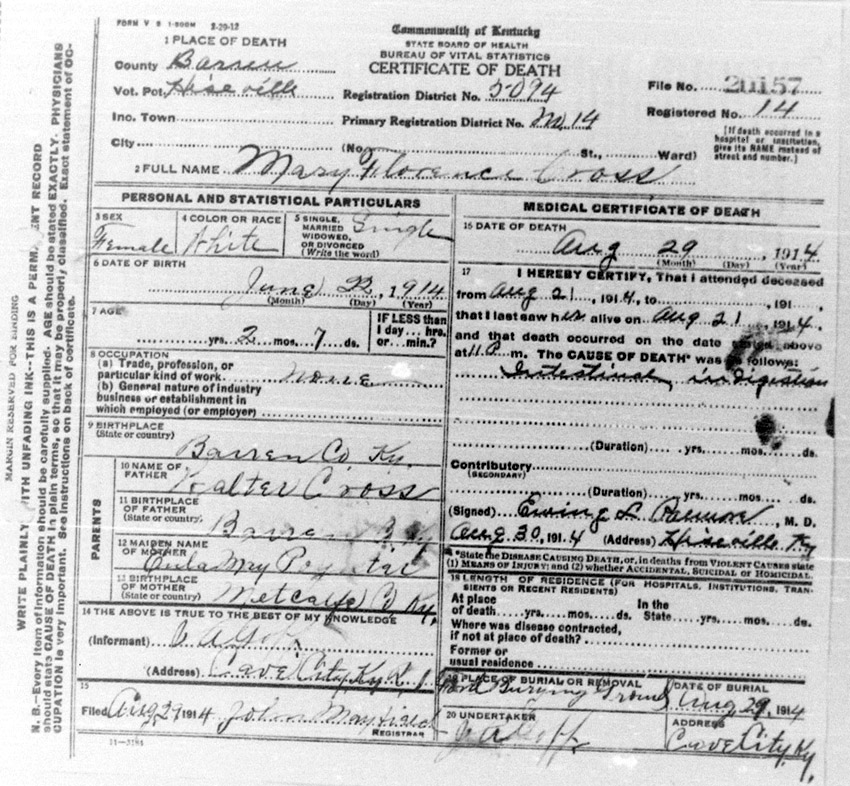 FORM V S 1-500M 2-20-12
Commonwealth of Kentucky
STATE BOARD OF HEALTH
BUREAU OF VITAL STATISTICS
CERTIFICATE OF DEATH
1 PLACE OF DEATH
County Barren
Vot. Pct. Hiseville
Inc. Town
City
Registration District No. 5094
Primary Registration District No. No 14
(No. St., Ward)
File No. 20157
Registered No. 14
[If death occurred in a
hospital or institution,
give its NAME instead of
street and number.]
2 FULL NAME Mary Florence Cross
PERSONAL AND STATISTICAL PARTICULARS
3 SEX
Female
4 COLOR OR RACE
White
5 SINGLE,
MARRIED
WIDOWED,
OR DIVORCED
(Write the word)
Single
6 DATE OF BIRTH
June 22, 1914
(Month) (Day) (Year)
7 AGE
yrs. 2 mos. 7 ds.
IF LESS than
1 day hrs.
or min.?
8 OCCUPATION
(a) Trade, profession, or
particular kind of work none
(b) General nature of industry
business or establishment in
which employed (or employer)
9 BIRTHPLACE
(State or country)
Barren Co Ky.
PARENTS
10 NAME OF
FATHER
Walter Cross
11 BIRTHPLACE
OF FATHER
(State or country)
Barren Ky
12 MAIDEN NAME
OF MOTHER
Eula May Poynter
13 BIRTHPLACE
OF MOTHER
(State or country)
Metcalfe Co Ky.
14 THE ABOVE IS TRUE TO THE BEST OF MY KNOWLEDGE
(Informant)
(Address) Cave City, Ky R. 1
15
Filed Aug 29 1914 John Mayfield
REGISTRAR
11—3184
MEDICAL CERTIFICATE OF DEATH
16 DATE OF DEATH
Aug 29, 1914
(Month) (Day) (Year)
17 I HEREBY CERTIFY, That I attended deceased
from Aug 21, 1914, to , 191
that I last saw her alive on Aug 21, 1914.
and that death occurred on the date above
at 11 m. The CAUSE OF DEATH* was as follows:
Intestinal indigestion
(Duration) yrs. mos. ds.
Contributory
(SECONDARY)
(Duration) yrs. mos. ds.
(Signed) Ewing L , M. D.
Aug 30, 1914 (Address) Hiseville Ky
*State the DISEASE CAUSING DEATH, or, in deaths from VIOLENT CAUSES state
(1) MEANS OF INJURY; and (2) whether ACCIDENTAL, SUICIDAL or HOMICIDAL.
18 LENGTH OF RESIDENCE (FOR HOSPITALS, INSTITUTIONS, TRAN-
SIENTS OR RECENT RESIDENTS)
At place
of death yrs. mos. ds.
In the
State yrs. mos. ds.
Where was disease contracted,
if not at place of death?
Former or
usual residence
19 PLACE OF BURIAL OR REMOVAL
Burying Ground
DATE OF BURIAL
Aug 29, 1914
20 UNDERTAKER
ADDRESS
Cave City, Ky.
MARGIN RESERVED FOR BINDING
WRITE PLAINLY, WITH UNFADING INK--THIS IS A PERMANENT RECORD
N. B.—Every item of information should be carefully supplied. AGE should be stated EXACTLY. PHYSICIANS
should state CAUSE OF DEATH in plain terms, so that it may be properly classified. Exact statement of OC-
CUPATION is very important. See instructions on back of certificate.